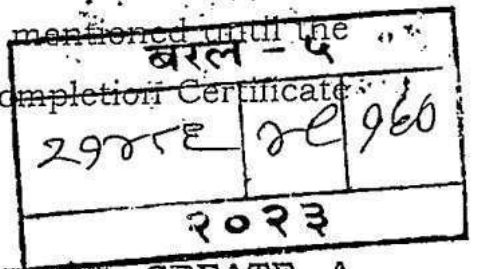 mentioned until the
बरल - ५
ompletion Certificate
२१४८६ ४९ १६०
२०२३
CREATE A